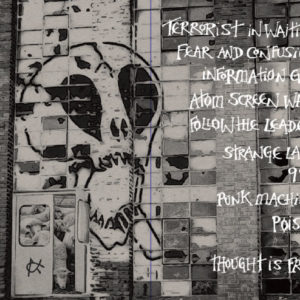 TERRORIST IN WAITI
FEAR AND CONFUSIO
INFORMATION O
ATOM SCREEN WA
FOLLOW THE LEADE
STRANGE LA
9
PUNK MACHI
POIS
THOUGHT IS FR